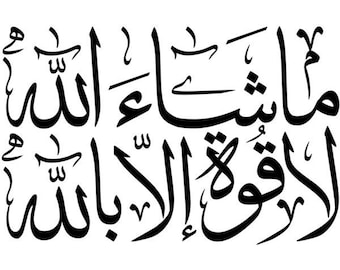 ما شاءَ اللّٰهُ
لا قُوةَ إلّا باللّٰهُ